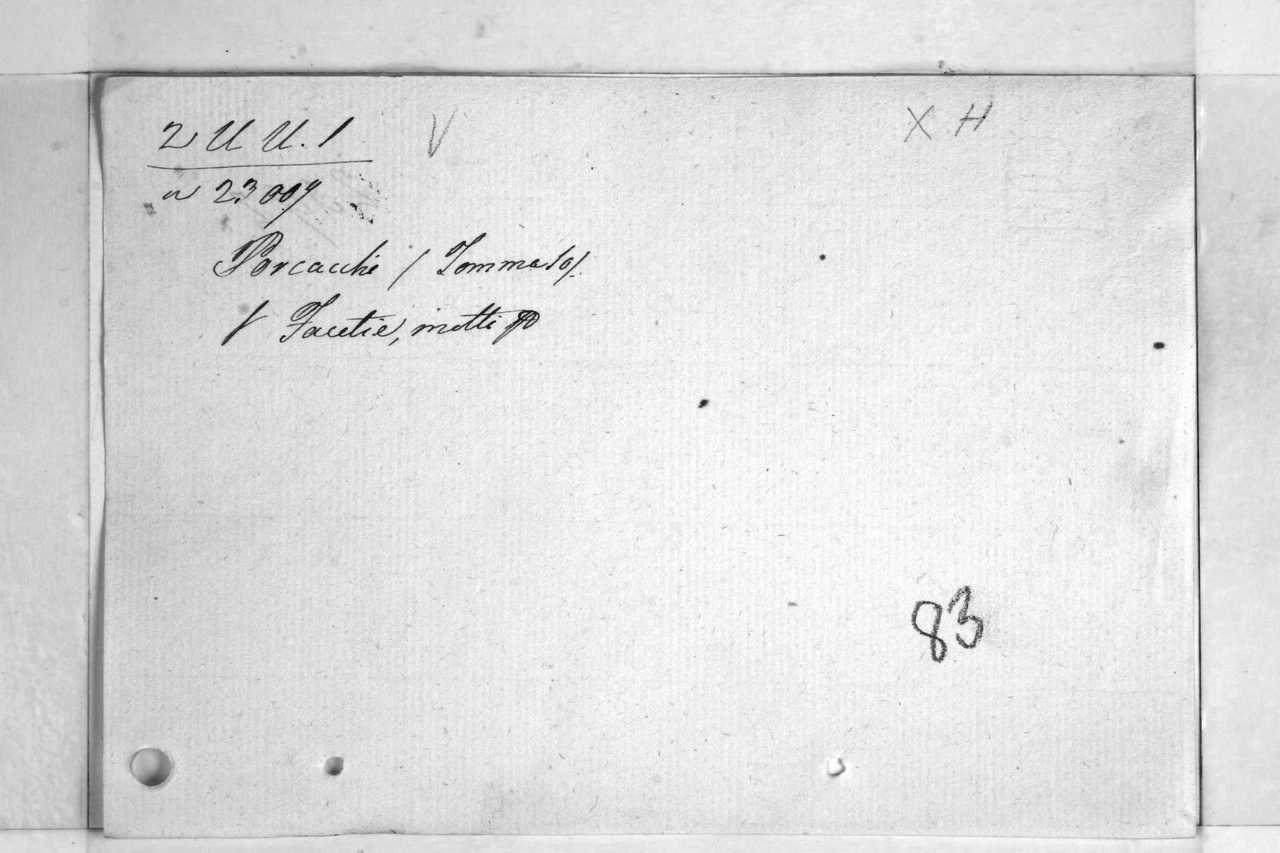 2 U U. 1 V X H
n 23009
Porcacchi / Tommaso /.
/ Facetie, motti
83